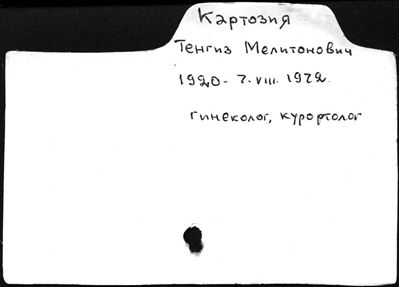 Картозия
Тенгиз Мелитонович
1920 - 7.VIII.1972.
гинеколог, курортолог